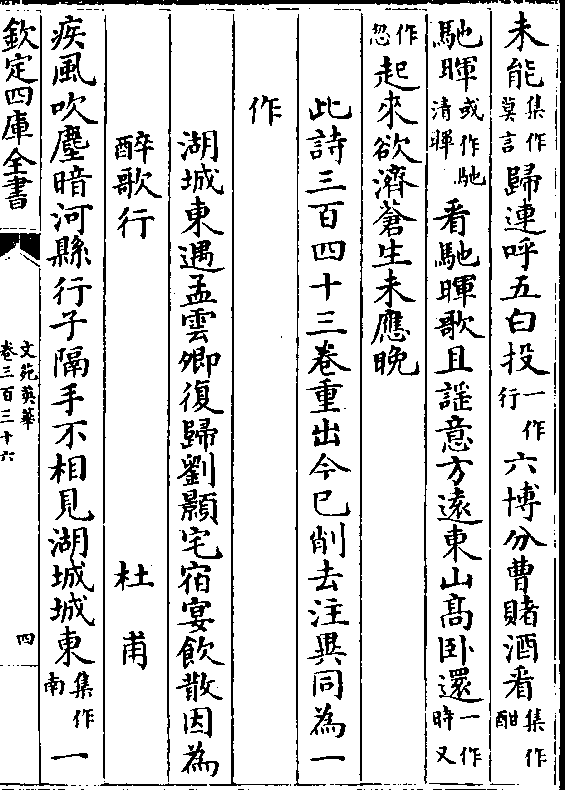 未能集作莫言歸連呼五白投一作行六博分曹賭酒看集作酣
馳暉或作馳清暉看馳暉歌且謡意方逺東山髙卧還一作時又
作忽起來欲濟蒼生未應晚
此詩三百四十三卷重出今已削去注異同為一
作
湖城東遇孟雲卿復歸劉顥宅宿宴飲散因為
醉歌行 杜甫
疾風吹塵暗河縣行子隔手不相見湖城城東集作南一
欽定四庫全書
文苑英華
卷三百三十六
四